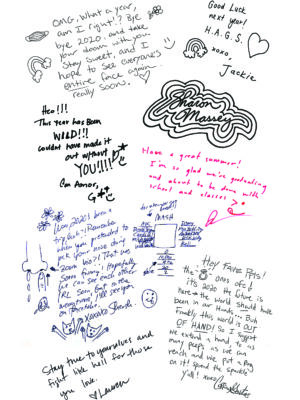 OMG, What a year,
am I right!? Bye
bye 2020. and take
the doom with you.
Stay sweet. and I
hope to see everyone's
entire face again...
really soon.
Good Luck
next year!
H.A.G.S.
xoxo,
Jackie
Hey!!!
This year has Been
WILD!!!
Couldnt have made it
out without
YOU!!!!
Con Amor,
G
Sharon
Massey
Have a great summer!
I'm so glad we're graduating
and about to be done with
school and classes
Wow 2020's been a
try, huh? Remember
when you pretended to
pick your nose during
zoom bio?! That was
sooo funny. Hopefully
we can see each other
IRL soon but in the
meantime, I'll see you
on
MASH
Hey Fave Pets!
the ones of
It's 2020 the future is
here & the world should have
been in our Hands. But
Frankly this world is OUT
OF HAND! So
We extend a hand to as
many peeps as we can
reach and we put a Ring
on it! spread the sparkle
y'all! xoxo
Stay true to yourselves and
fight like hell for those
you love.
Lauren